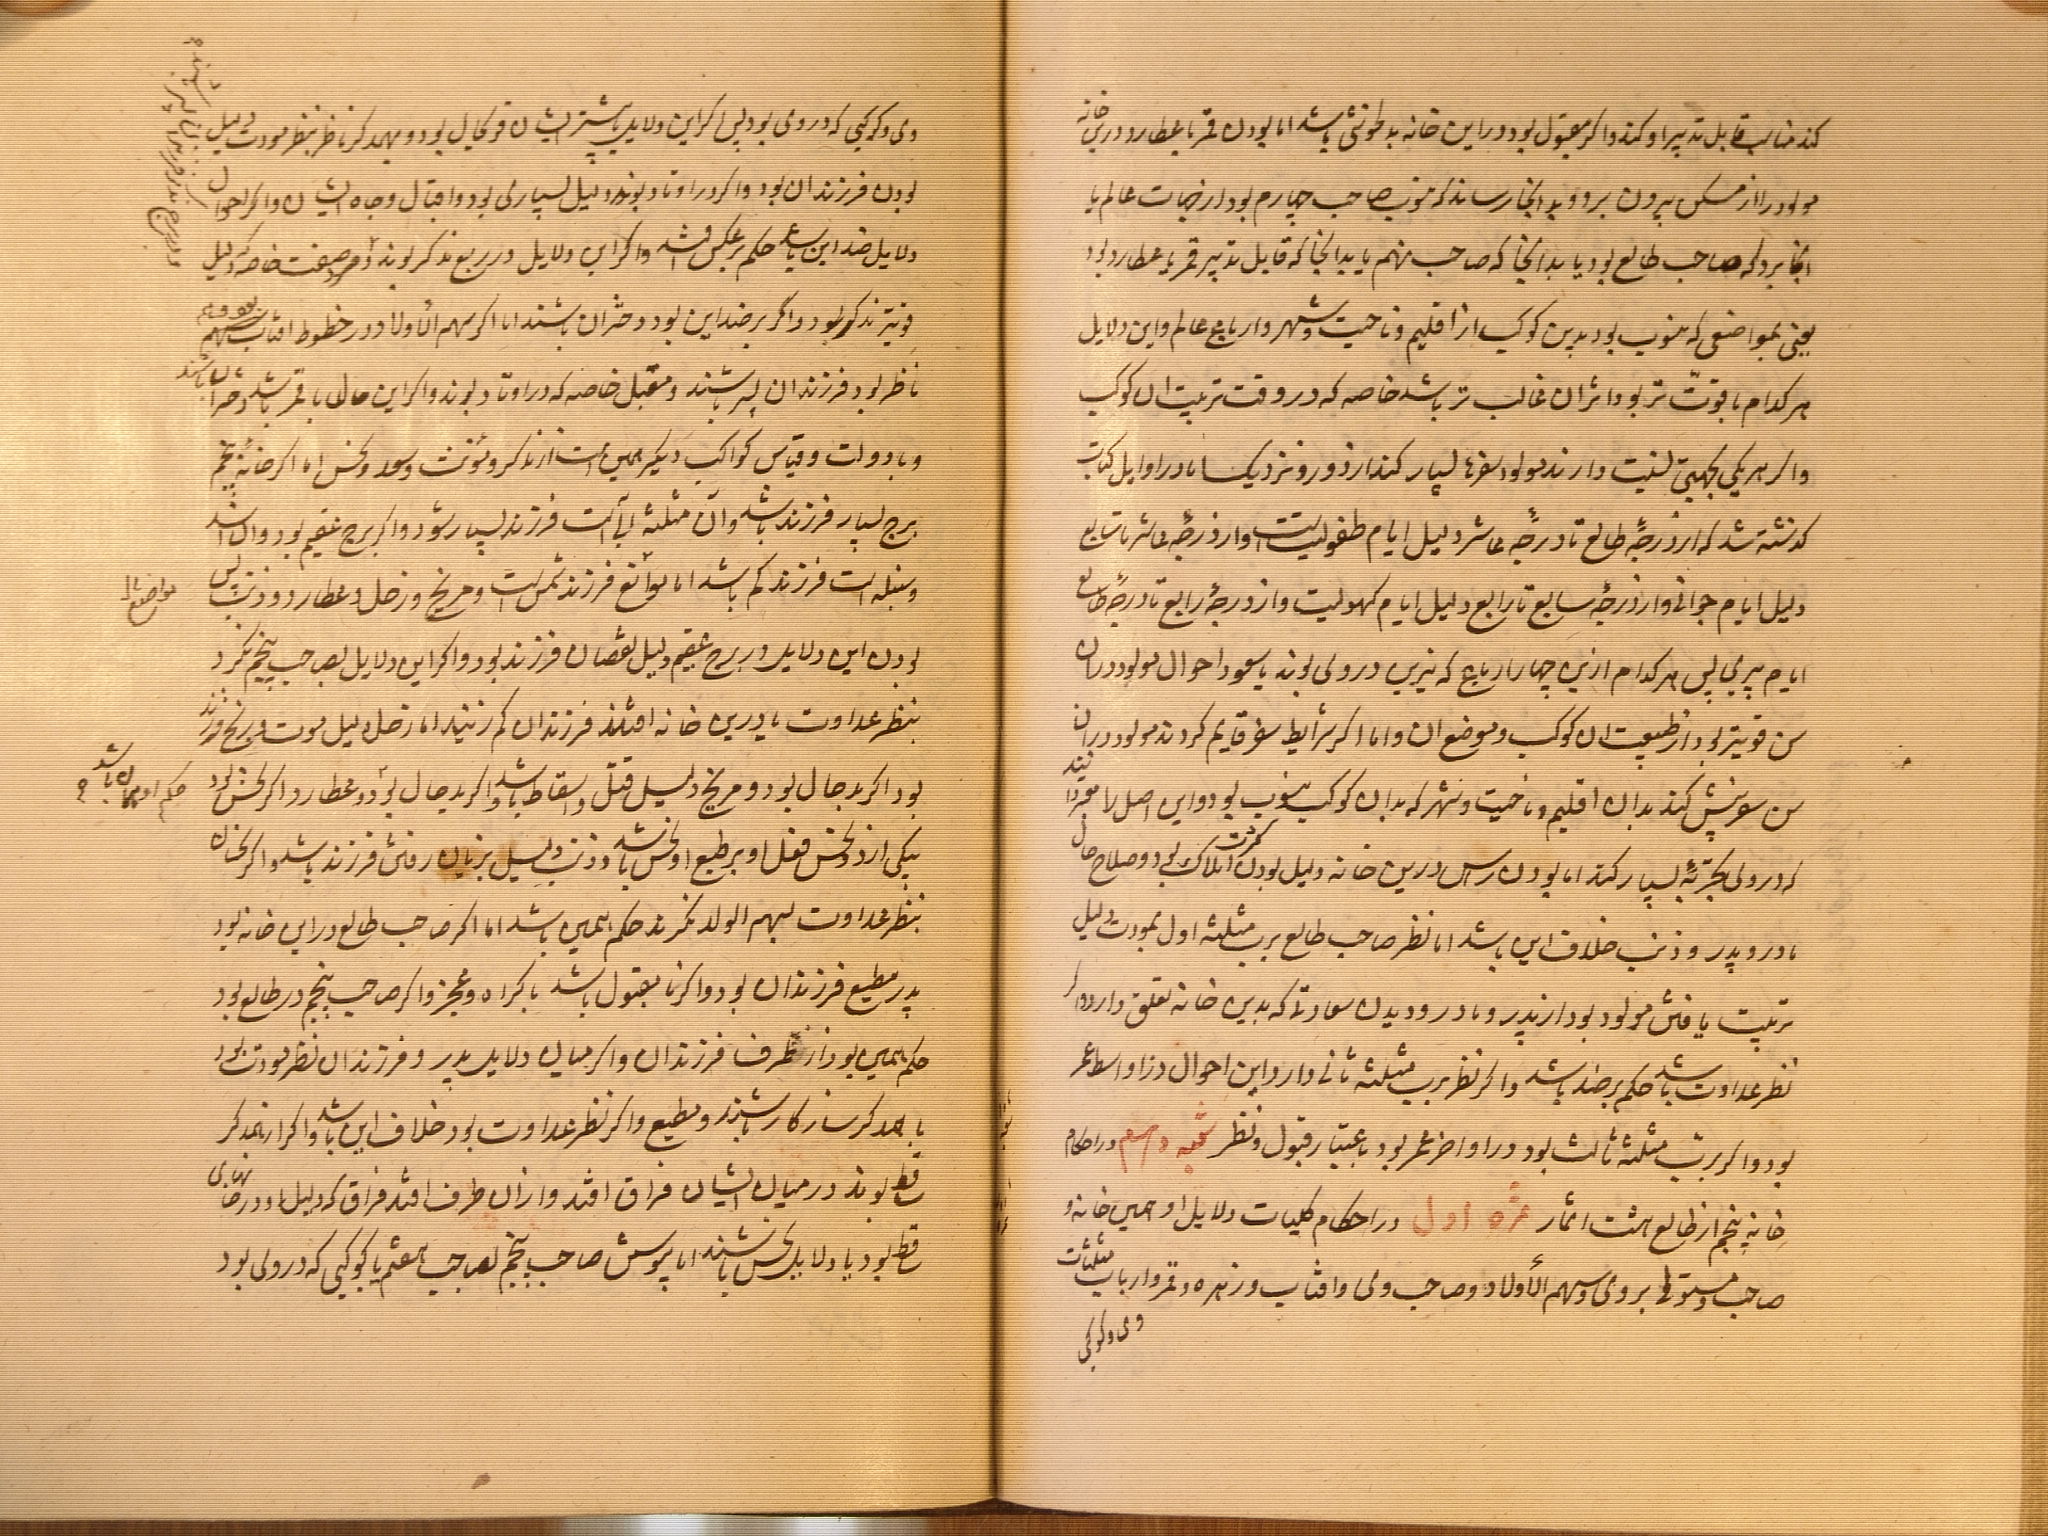 کند مناسب قابل تدبیر او کند و اکر مقبول بود در این خانه بد لخوشی باشد اما بودن قمر با عطارد در این خانه
مولود را از مسکن بیرون برد و بدانجا رساند که منسوب صاحب چهارم بود از جهات عالم یا
انجا برد که صاحب طالع بود یا بدانجا که صاحب نهم یا بدانجا که قابل تدبیر قمر یا عطارد بود
یعنی بمواضعی که منسوب بود بدین کوکب از اقلیم و ناحیت و شهر و ارباع عالم و این دلایل
هر کدام با قوت تر بود اثر ان غالب تر باشد خاصه که در وقت تربیت ان کوکب
و اکر هر یکی بجهتی نسبت دارند مولود سفرها بسیار کند از دور و نزدیک اما در اوایل کتاب
کذشته شد که از درجهٔ طالع تا درجهٔ عاشر دلیل ایام طفولیت است و از درجهٔ عاشر تا سابع
دلیل ایام جوانی و از درجهٔ سابع تا رابع دلیل ایام کهولیت و از درجهٔ رابع تا درجهٔ طالع
ایام پیری پس هر کدام ازین چهار ارباع که نیرین در وی بوند یا سعود احوال مولود در ان
سن قویتر بود از طبیعت ان کوکب و موضع ان و اما اکر شرایط سفر قایم کردند مولود در ان
سن سفر پیش کند بدان اقلیم و ناحیت و شهر که بدان کوکب منسوب بود و این اصل را
که در وی تجربهٔ بسیار کنند اما بودن راس درین خانه دلیل بودن کثرت املاک بود و صلاح حال
مادر و پدر و ذنب خلاف این باشد اما نظر صاحب طالع برب مثلثه اول بمودت دلیل
تربیت یافتن مولود بود از پدر و مادر و دیدن سعادتی که بدین خانه تعلق دارد و اکر
نظر عداوت باشد حکم بر ضد باشد و اکر نظر برب مثلثه ثانی دارد این احوال در اواسط عمر
بود و اکر برب مثلثه ثالث بود در اواخر عمر بود باعتبار قبول و نظر شعبه در احکام
خانه پنجم از طالع هشت اثمار ثمره اول در احکام کلیات دلایل او همین خانه و
صاحب و مستولی بر وی و سهم الأولاد و صاحب وی و افتاب و زهره و قمر و ارباب مثلثات
وی و کوکبی
وی و کوکبی که در وی بود پس اکر این دلایل بیشتر ایشان قوی حال بود و بهمدکر ناظر بنظر مودت دلیل
بودن فرزندان بود و اکر در اوتاد بوند دلیل بسیاری بود و اقبال و جاه ایشان و اکر احوال
دلایل ضد این باشد حکم بر عکس باشد و اکر این دلایل در ربع مذکر بوند و در صفت خاصه که دلیل
قویتر مذکر بود و اگر بر ضد این بود دختران باشند اما اکر سهم الأولاد در خطوط افتاب بود و سهم
ناظر بود فرزندان پسر باشند و مقبل خاصه که در اوتاد بوند و اکر این حال با قمر باشد دختران باشند
و بادولت و قیاس کواکب دیگر همین است از مذکر و مؤنث و سعد و نحس اما اکر خانهٔ پنجم
برج بسیار فرزند باشد و آن مثلثهٔ آبی است فرزند بسیار شود و اکر برج عقیم بود و ان اسد
و سنبله است فرزند کم باشد اما موانع فرزند شمس است و مریخ و زحل و عطارد و ذنب پس
بودن این دلایل در برج عقیم دلیل نقصان فرزند بود و اکر این دلایل بصاحب پنجم نکرد
بنظر عداوت یا درین خانه افتند فرزندان کم زنید اما زحل دلیل موت و رنج فرزند
بود اکر بد حال بود و مریخ دلیل قتل و اسقاط باشد اکر بد حال بود و عطارد اکر نحس بود
یکی از دو نحس فعل او بر طبع او نحس باشد و ذنب دلیل بزیان رفتن فرزند باشد و اکر نحسان
بنظر عداوت بسهم الولد نکرند حکم همین باشد اما اکر صاحب طالع در این خانه بود
پدر مطیع فرزندان بود و اکر نامقبول باشد باکراه و عجز و اکر صاحب پنجم در طالع بود
حکم همین بود از طرف فرزندان و اکر میان دلایل پدر و فرزندان نظر مودت بود
با همدکر سازکار باشند و مطیع و اکر نظر عداوت بود خلاف این باشد و اکر از همدکر
ساقط بوند در میان ایشان فراق افتد و از ان طرف افتد فراق که دلیل او در خانه‌ای
ساقط بود یا دلایل نحس باشند اما پیوستن صاحب پنجم بصاحب هفتم یا کوکبی که در وی بود
مواضع
حکم او همان باشد